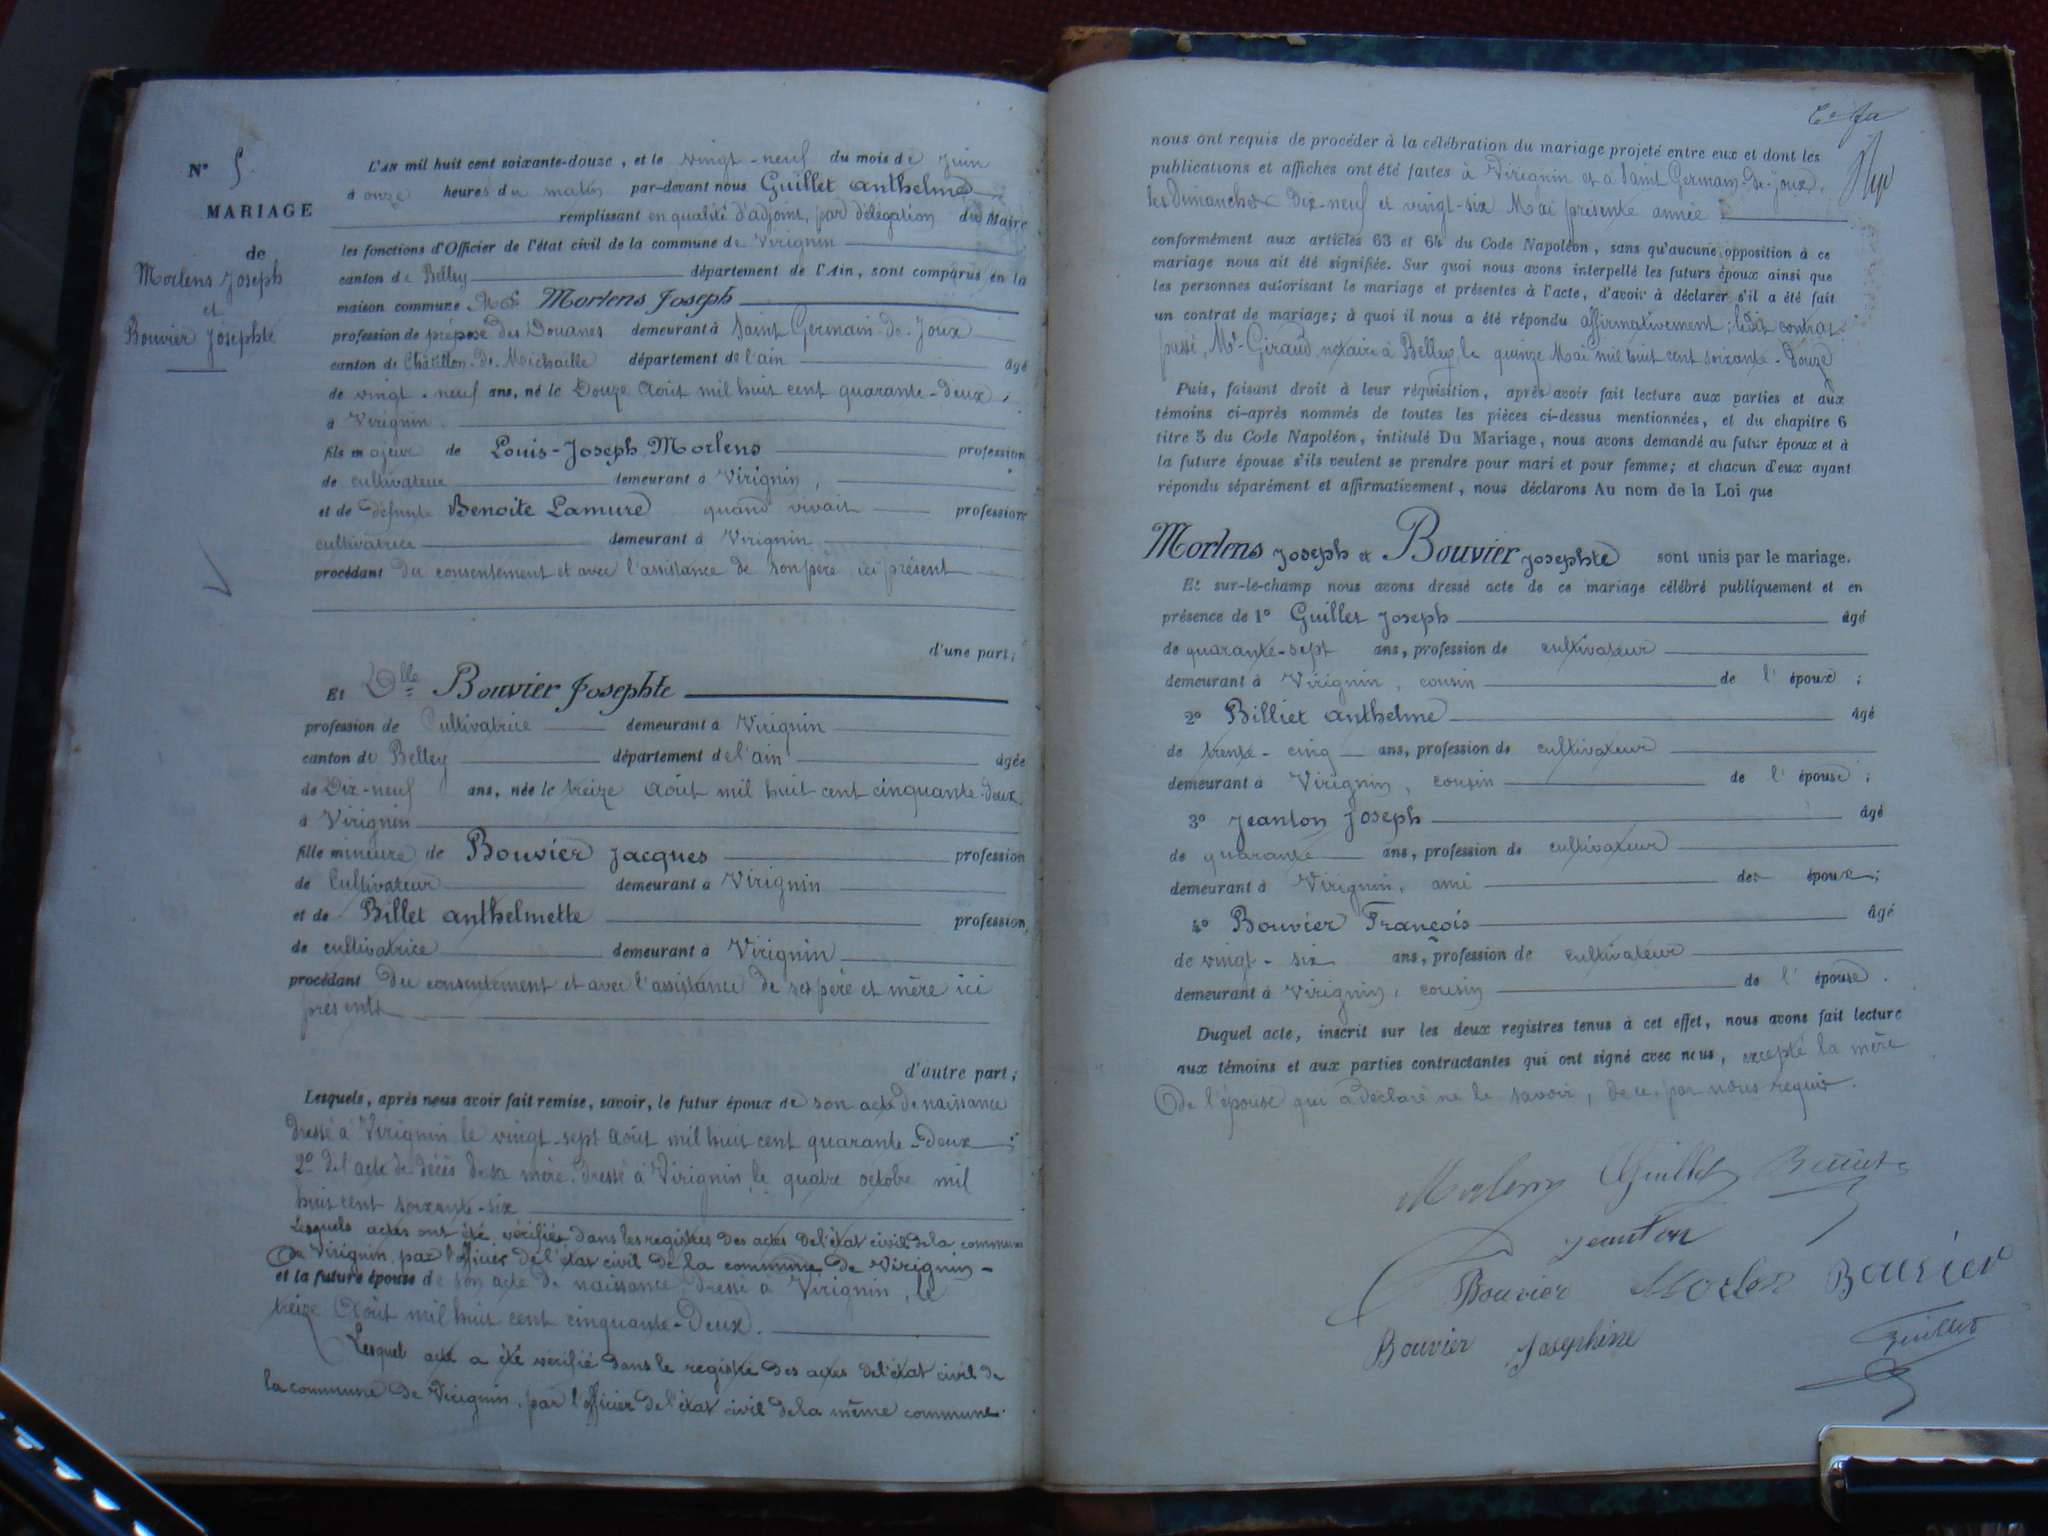 N° 5.
MARIAGE
de
Morlens Joseph
et
Bouvier Josephte
L'AN mil huit cent soixante-douze, et le vingt-neuf du mois de Juin
à onze heures du matin par-devant nous Guillet anthelme
remplissant en qualité d'adjoint, par délégation du Maire
les fonctions d'Officier de l'état civil de la commune de Virignin
canton de Belley département de l'Ain, sont comparus en la
maison commune Mr Morlens Joseph
profession de préposé des Douanes demeurant à Saint Germain-de-Joux
canton de Châtillon-de-Michaille département de l'ain âgé
de vingt-neuf ans, né le Douze Août mil huit cent quarante-deux,
à Virignin.
fils majeur de Louis-Joseph Morlens profession
de cultivateur demeurant à Virignin,
et de défunte Benoite Lamure quand vivait profession
cultivatrice demeurant à Virignin
procédant du consentement et avec l'assistance de son père, ici présent
d'une part;
Et Dlle Bouvier Josephte
profession de Cultivatrice demeurant à Virignin
canton de Belley département de l'ain âgée
de Dix-neuf ans, née le treize Août mil huit cent cinquante-deux
à Virignin
fille mineure de Bouvier Jacques profession
de Cultivateur demeurant à Virignin
et de Billet anthelmette profession
de cultivatrice demeurant à Virignin
procédant Du consentement et avec l'assistance de ses père et mère ici
présents
d'autre part;
Lesquels, après nous avoir fait remise, savoir, le futur époux de son acte de naissance
dressé à Virignin le vingt-sept Août mil huit cent quarante-Deux;
2° de l'acte de décès de sa mère dressé à Virignin le quatre octobre mil
huit cent soixante-six
Lesquels actes ont été vérifiés dans les registres des actes de l'état civil de la commune
De Virignin, par l'officier de l'état civil de la commune de Virignin-
et la future épouse de son acte de naissance, dressé à Virignin, le
treize Août mil huit cent cinquante-Deux.
Lequel acte a été vérifié dans le registre des actes de l'état civil de
la commune de Virignin, par l'officier de l'état civil de la même commune.
nous ont requis de procéder à la célébration du mariage projeté entre eux et dont les
publications et affiches ont été faites à Virignin et à Saint Germain-de-Joux,
les Dimanches Dix-neuf et vingt-six Mai présente année
conformément aux articles 63 et 64 du Code Napoléon, sans qu'aucune opposition à ce
mariage nous ait été signifiée. Sur quoi nous avons interpellé les futurs époux ainsi que
les personnes autorisant le mariage et présentes à l'acte, d'avoir à déclarer s'il a été fait
un contrat de mariage; à quoi il nous a été répondu affirmativement; ledit contrat
passé, Me Giraud, notaire à Belley, le quinze Mai mil huit cent soixante-Douze
Puis, faisant droit à leur réquisition, après avoir fait lecture aux parties et aux
témoins ci-après nommés de toutes les pièces ci-dessus mentionnées, et du chapitre 6
titre 5 du Code Napoléon, intitulé Du Mariage, nous avons demandé au futur époux et à
la future épouse s'ils veulent se prendre pour mari et pour femme; et chacun d'eux ayant
répondu séparément et affirmativement, nous déclarons Au nom de la Loi que
Morlens Joseph & Bouvier Josephte sont unis par le mariage.
Et sur-le-champ nous avons dressé acte de ce mariage célébré publiquement et en
présence de 1° Guillet Joseph âgé
de quarante-sept ans, profession de cultivateur
demeurant à Virignin, cousin de l'époux;
2° Billiet anthelme âgé
de trente-cinq ans, profession de cultivateur
demeurant à Virignin, cousin de l'épouse;
3° Jeanton Joseph âgé
de quarante ans, profession de cultivateur
demeurant à Virignin, ami des époux;
4° Bouvier François âgé
de vingt-six ans, profession de cultivateur
demeurant à Virignin, cousin de l'épouse.
Duquel acte, inscrit sur les deux registres tenus à cet effet, nous avons fait lecture
aux témoins et aux parties contractantes qui ont signé avec nous, excepté la mère
De l'épouse qui a Déclaré ne le savoir, de ce par nous requis.
Morlens Guillet
Jeanton
Bouvier Morlens Bouvier
Bouvier Josephine Guillet